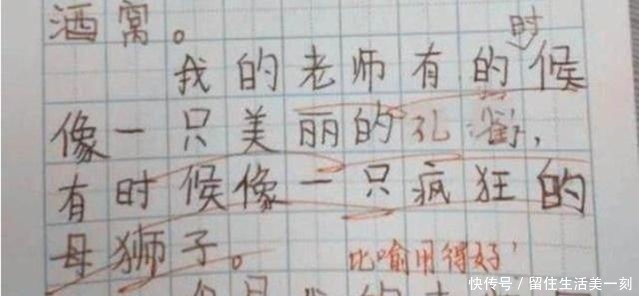 酒窝。
时
我的老师有的候
像一只美丽的孔雀,
有时候像一只疯狂的
母狮子。
比喻用得好
快传号 / 留住生活美一刻